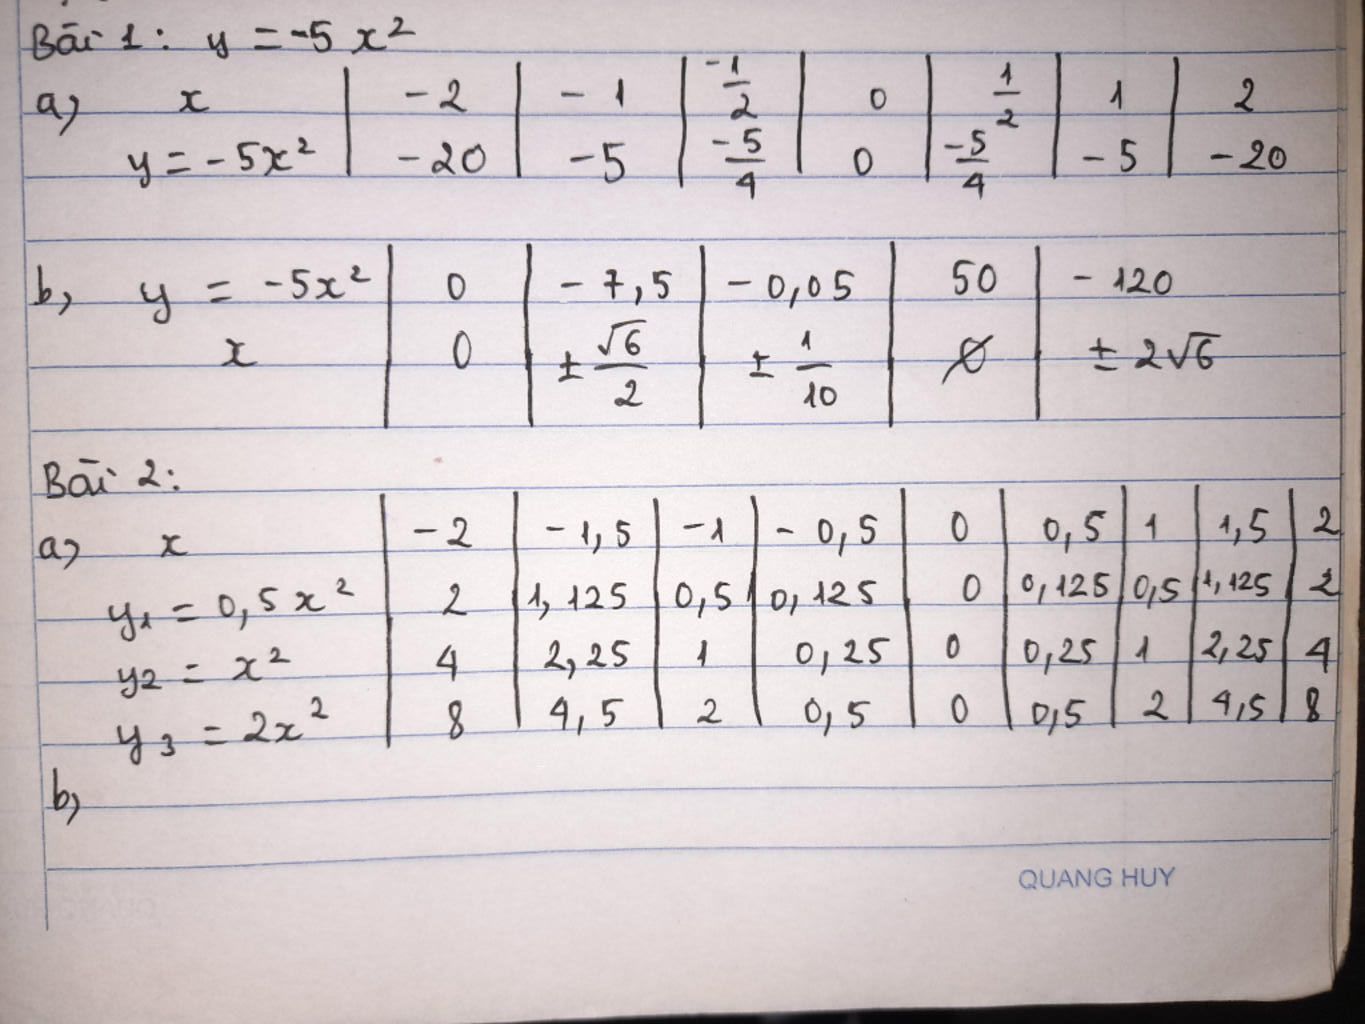 Bài 1: y = -5x²
a) x | -2 | -1 | -1/2 | 0 | 1/2 | 1 | 2
y = -5x² | -20 | -5 | -5/4 | 0 | -5/4 | -5 | -20
b) y = -5x² | 0 | -7,5 | -0,05 | 50 | -120
x | 0 | ± √6/2 | ± 1/10 | ∅ | ± 2√6
Bài 2:
a) x | -2 | -1,5 | -1 | -0,5 | 0 | 0,5 | 1 | 1,5 | 2
y₁ = 0,5x² | 2 | 1,125 | 0,5 | 0,125 | 0 | 0,125 | 0,5 | 1,125 | 2
y₂ = x² | 4 | 2,25 | 1 | 0,25 | 0 | 0,25 | 1 | 2,25 | 4
y₃ = 2x² | 8 | 4,5 | 2 | 0,5 | 0 | 0,5 | 2 | 4,5 | 8
b)
QUANG HUY